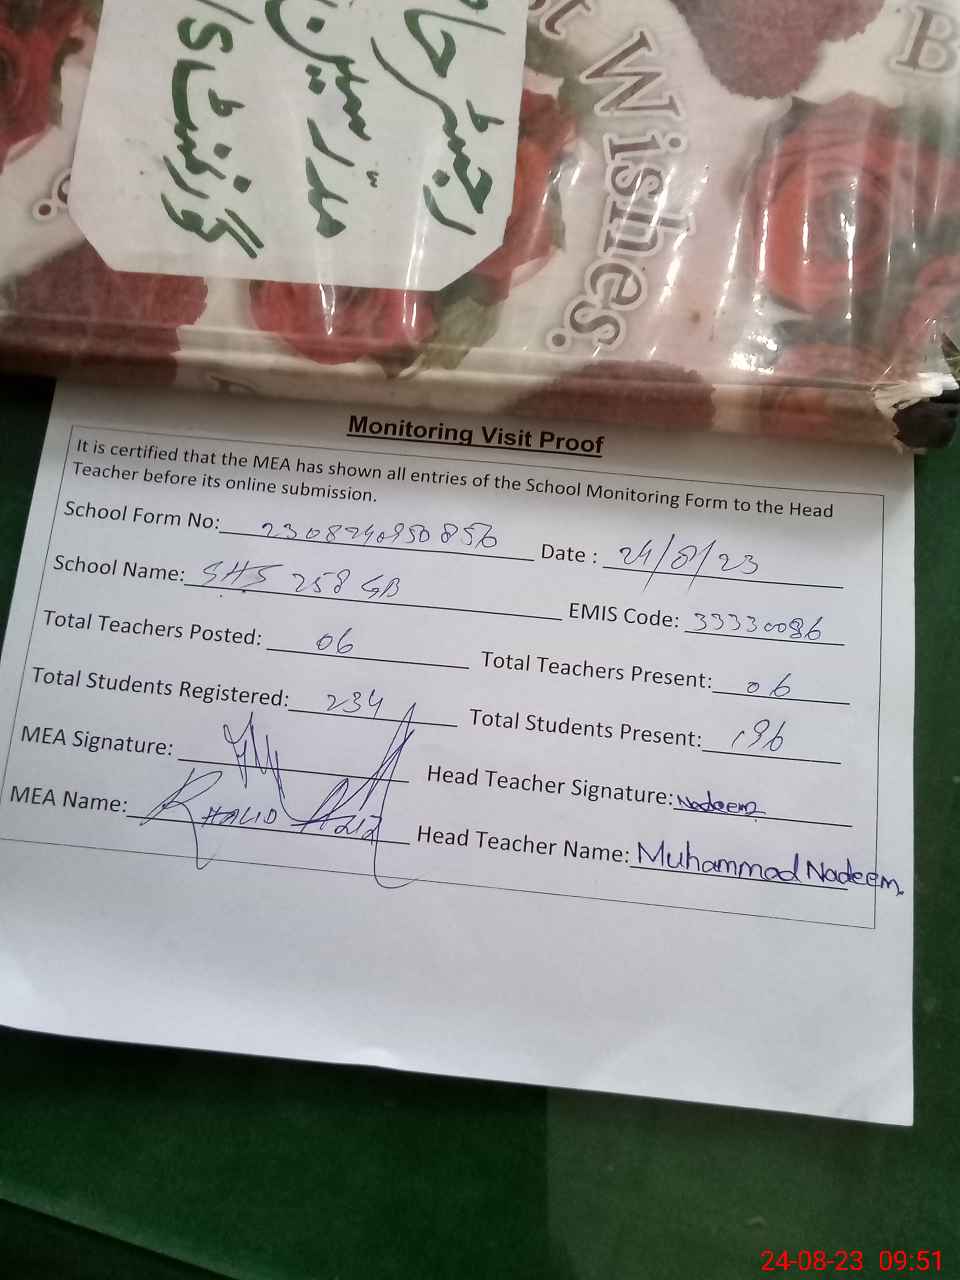 رجسٹر حا
مدرسین
گورنمنٹ
st Wishes.
B
Monitoring Visit Proof
It is certified that the MEA has shown all entries of the School Monitoring Form to the Head
Teacher before its online submission.
School Form No: 2308240950856 Date : 24/8/23
School Name: SHS 258 GB EMIS Code: 33330086
Total Teachers Posted: 06 Total Teachers Present: 06
Total Students Registered: 234 Total Students Present: 196
MEA Signature: Head Teacher Signature: Nadeem
MEA Name: KHALID AZIZ Head Teacher Name: Muhammad Nadeem
24-08-23 09:51